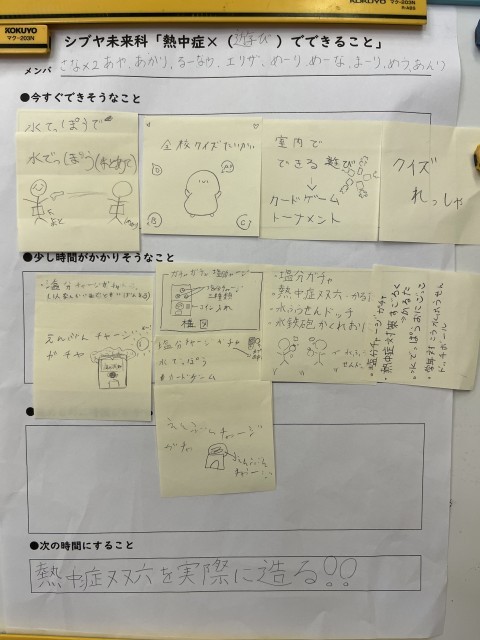 KOKUYO
マク-203N
KOKUYO
マク-203N
シブヤ未来科「熱中症×（遊び）でできること」
メンバ
さな×2 あや、あかり、るーなり、エリザ、めーり、めーな、まーり、めう、あんり
●今すぐできそうなこと
水でっぽうで
水でっぽう(まとあて)
まと
全校クイズたいかい
D
A
B
C
室内で
できる 遊び
↓
カードゲーム
トーナメント
クイズ
れっしゃ
●少し時間がかかりそうなこと
・塩分チャージガチャ
えんぶんチャージ
ガチャ
ガチャガチャ 塩分チャージ
コインいれ
図
塩分チャージ ガチャ
水でっぽう
カードゲーム
・塩分ガチャ
・熱中症双六・かるた
・水ふうせんドッチ
・水鉄砲かくれおに
・塩分チャージガチャ
・熱中症対策すごろく
かるた
・水でっぽうおにごっこ
ドッチボール
えんぶんチャージ
ガチャ
●次の時間にすること
熱中症双六を実際に造る!!